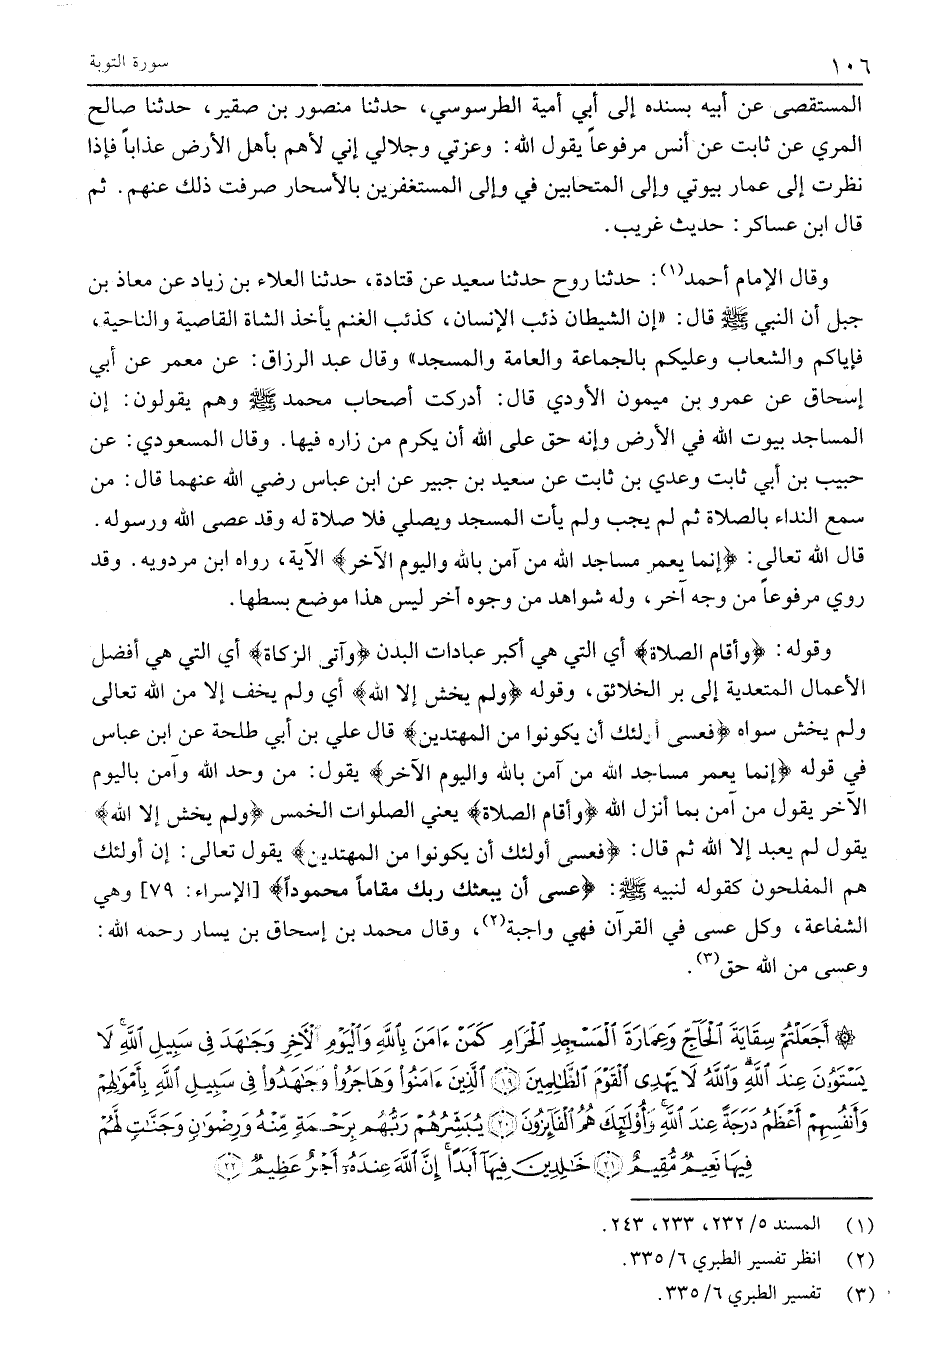 ١٠٦ سورة التوبة
المستقصى عن أبيه بسنده إلى أبي أمية الطرسوسي، حدثنا منصور بن صقير، حدثنا صالح
المري عن ثابت عن أنس مرفوعاً يقول الله: وعزتي وجلالي إني لأهم بأهل الأرض عذاباً فإذا
نظرت إلى عمار بيوتي وإلى المتحابين في وإلى المستغفرين بالأسحار صرفت ذلك عنهم. ثم
قال ابن عساكر: حديث غريب.
وقال الإمام أحمد(١): حدثنا روح حدثنا سعيد عن قتادة، حدثنا العلاء بن زياد عن معاذ بن
جبل أن النبي ﷺ قال: «إن الشيطان ذئب الإنسان، كذئب الغنم يأخذ الشاة القاصية والناحية،
فإياكم والشعاب وعليكم بالجماعة والعامة والمسجد» وقال عبد الرزاق: عن معمر عن أبي
إسحاق عن عمرو بن ميمون الأودي قال: أدركت أصحاب محمد ﷺ وهم يقولون: إن
المساجد بيوت الله في الأرض وإنه حق على الله أن يكرم من زاره فيها. وقال المسعودي: عن
حبيب بن أبي ثابت وعدي بن ثابت عن سعيد بن جبير عن ابن عباس رضي الله عنهما قال: من
سمع النداء بالصلاة ثم لم يجب ولم يأت المسجد ويصلي فلا صلاة له وقد عصى الله ورسوله.
قال الله تعالى: ﴿إنما يعمر مساجد الله من آمن بالله واليوم الآخر﴾ الآية، رواه ابن مردويه. وقد
روي مرفوعاً من وجه آخر، وله شواهد من وجوه أخر ليس هذا موضع بسطها.
وقوله: ﴿وأقام الصلاة﴾ أي التي هي أكبر عبادات البدن ﴿وآتى الزكاة﴾ أي التي هي أفضل
الأعمال المتعدية إلى بر الخلائق، وقوله ﴿ولم يخش إلا الله﴾ أي ولم يخف إلا من الله تعالى
ولم يخش سواه ﴿فعسى أولئك أن يكونوا من المهتدين﴾ قال علي بن أبي طلحة عن ابن عباس
في قوله ﴿إنما يعمر مساجد الله من آمن بالله واليوم الآخر﴾ يقول: من وحد الله وآمن باليوم
الآخر يقول من آمن بما أنزل الله ﴿وأقام الصلاة﴾ يعني الصلوات الخمس ﴿ولم يخش إلا الله﴾
يقول لم يعبد إلا الله ثم قال: ﴿فعسى أولئك أن يكونوا من المهتدين﴾ يقول تعالى: إن أولئك
هم المفلحون كقوله لنبيه ﷺ: ﴿عسى أن يبعثك ربك مقاماً محموداً﴾ [الإسراء: ٧٩] وهي
الشفاعة، وكل عسى في القرآن فهي واجبة(٢)، وقال محمد بن إسحاق بن يسار رحمه الله:
وعسى من الله حق(٣).
۞ أَجَعَلْتُمْ سِقَايَةَ ٱلْحَآجِّ وَعِمَارَةَ ٱلْمَسْجِدِ ٱلْحَرَامِ كَمَنْ ءَامَنَ بِٱللَّهِ وَٱلْيَوْمِ ٱلْءَاخِرِ وَجَٰهَدَ فِى سَبِيلِ ٱللَّهِۚ لَا
يَسْتَوُۥنَ عِندَ ٱللَّهِۗ وَٱللَّهُ لَا يَهْدِى ٱلْقَوْمَ ٱلظَّٰلِمِينَ ﴿١٩﴾ ٱلَّذِينَ ءَامَنُوا۟ وَهَاجَرُوا۟ وَجَٰهَدُوا۟ فِى سَبِيلِ ٱللَّهِ بِأَمْوَٰلِهِمْ
وَأَنفُسِهِمْ أَعْظَمُ دَرَجَةً عِندَ ٱللَّهِۚ وَأُو۟لَٰٓئِكَ هُمُ ٱلْفَآئِزُونَ ﴿٢٠﴾ يُبَشِّرُهُمْ رَبُّهُم بِرَحْمَةٍ مِّنْهُ وَرِضْوَٰنٍ وَجَنَّٰتٍ لَّهُمْ
فِيهَا نَعِيمٌ مُّقِيمٌ ﴿٢١﴾ خَٰلِدِينَ فِيهَآ أَبَدًاۚ إِنَّ ٱللَّهَ عِندَهُۥٓ أَجْرٌ عَظِيمٌ ﴿٢٢﴾
(١) المسند ٥/ ٢٣٢، ٢٣٣، ٢٤٣.
(٢) انظر تفسير الطبري ٦/ ٣٣٥.
(٣) تفسير الطبري ٦/ ٣٣٥.